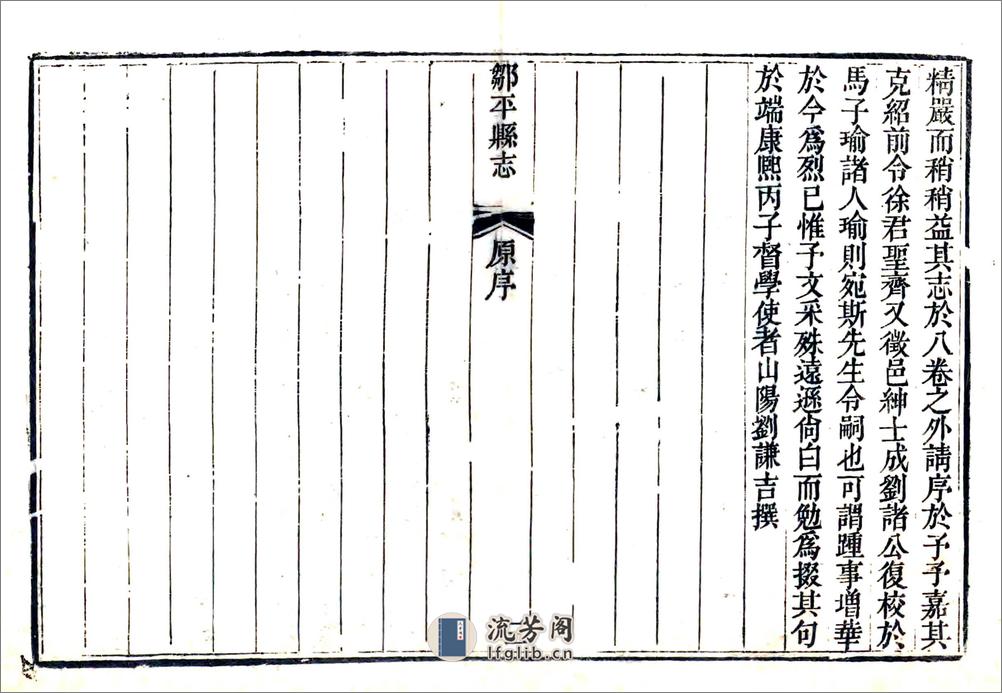 精嚴而稍稍益其志於八卷之外請序於予予嘉其
克紹前令徐君聖齊又徵邑紳士成劉諸公復校於
馬子瑜諸人瑜則宛斯先生令嗣也可謂踵事增華
於今爲烈已惟予文采殊遠遜尙白而勉爲掇其句
於端康熙丙子督學使者山陽劉謙吉撰
鄒平縣志 原序
流芳阁
lfglib.cn